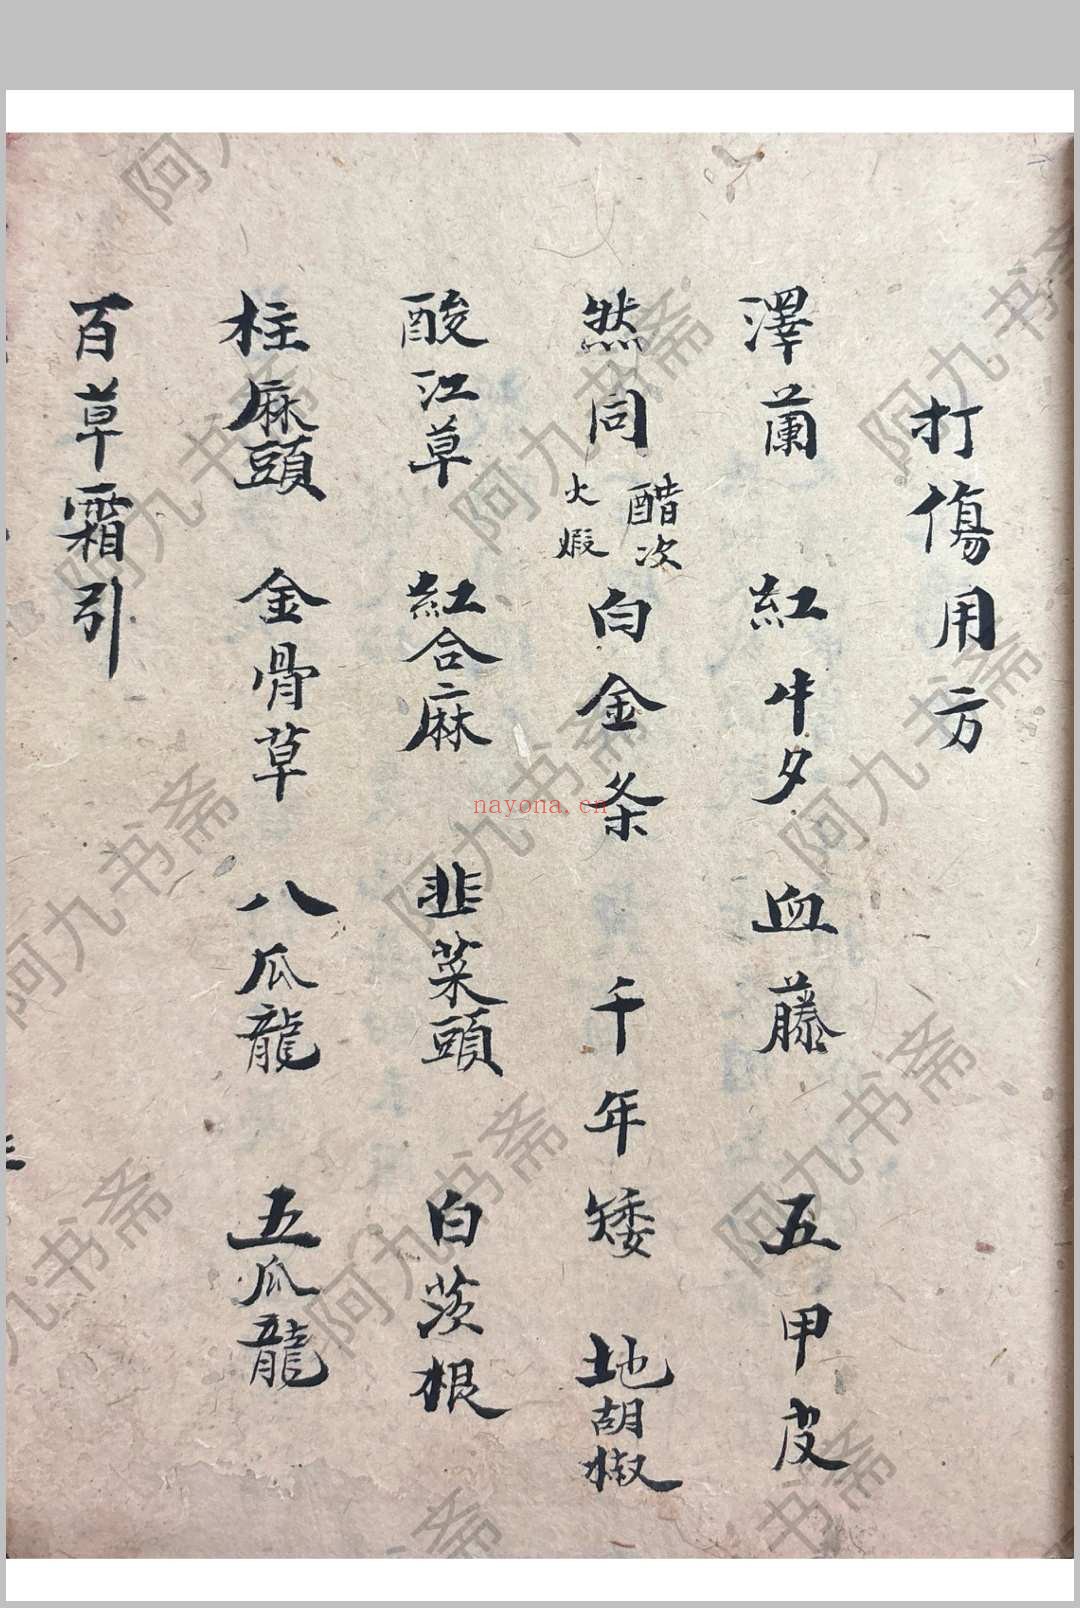 打傷用方
澤蘭 紅牛夕 血藤 五甲皮
然同 醋次火煆 白金条 千年矮 地胡椒
酸江草 紅合麻 韭菜頭 白茨根
柱麻頭 金骨草 八爪龍 五爪龍
百草霜引
nayona.cn
阿九书斋